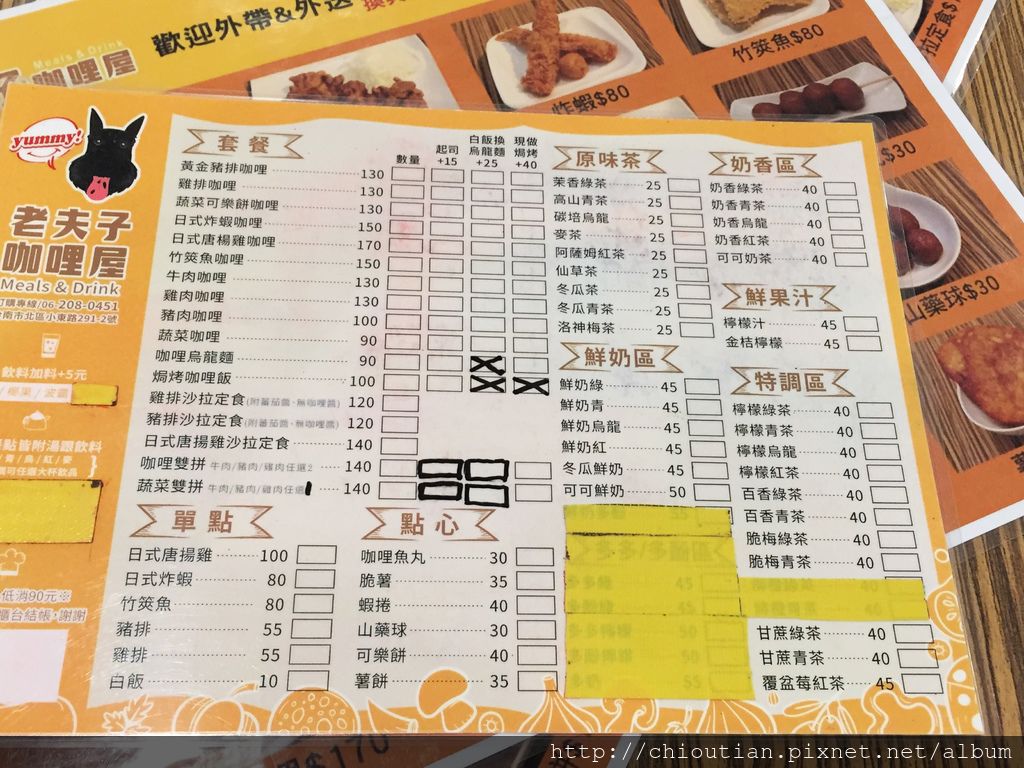 歡迎外帶&外送
Meals & Drink
咖哩屋
炸蝦$80
竹筴魚$80
$30
山藥球$30
yummy!
老夫子
咖哩屋
Meals & Drink
訂購專線/06-208-0451
台南市北區小東路291-2號
飲料加料+5元
/ 椰果 / 波霸
餐點皆附湯跟飲料
/ 青 / 烏 / 紅 / 麥
可任選大杯飲品
低消90元※
櫃台結帳·謝謝
套餐
數量
起司
+15
白飯換
烏龍麵
+25
現做
焗烤
+40
黃金豬排咖哩 130
雞排咖哩 130
蔬菜可樂餅咖哩 130
日式炸蝦咖哩 150
日式唐楊雞咖哩 170
竹筴魚咖哩 150
牛肉咖哩 130
雞肉咖哩 130
豬肉咖哩 100
蔬菜咖哩 90
咖哩烏龍麵 90
焗烤咖哩飯 100
雞排沙拉定食(附蕃茄醬·無咖哩醬) 120
豬排沙拉定食(附蕃茄醬·無咖哩醬) 120
日式唐揚雞沙拉定食 140
咖哩雙拼 牛肉/豬肉/雞肉任選2 140
蔬菜雙拼 牛肉/豬肉/雞肉任選1 140
單點
日式唐揚雞 100
日式炸蝦 80
竹筴魚 80
豬排 55
雞排 55
白飯 10
點心
咖哩魚丸 30
脆薯 35
蝦捲 40
山藥球 30
可樂餅 40
薯餅 35
原味茶
茉香綠茶 25
高山青茶 25
碳培烏龍 25
麥茶 25
阿薩姆紅茶 25
仙草茶 25
冬瓜茶 25
冬瓜青茶 25
洛神梅茶 25
鮮奶區
鮮奶綠 45
鮮奶青 45
鮮奶烏龍 45
鮮奶紅 45
冬瓜鮮奶 45
可可鮮奶 50
奶香區
奶香綠茶 40
奶香青茶 40
奶香烏龍 40
奶香紅茶 40
可可奶茶 40
鮮果汁
檸檬汁 45
金桔檸檬 40
特調區
檸檬綠茶 40
檸檬青茶 40
檸檬烏龍 40
檸檬紅茶 40
百香綠茶 40
百香青茶 40
脆梅綠茶 40
脆梅青茶 40
甘蔗綠茶 40
甘蔗青茶 40
覆盆莓紅茶 45
$170
http://chioutian.pixnet.net/album